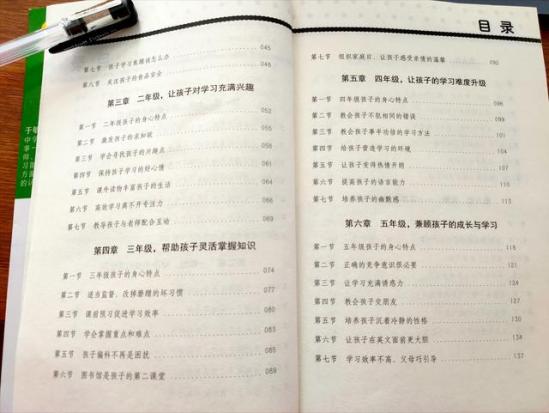 第七节 孩子学习焦躁该怎么办 045
第八节 关注孩子的食品安全 048
第三章 二年级，让孩子对学习充满兴趣
第一节 二年级孩子的身心特点 052
第二节 激发孩子的求知欲 055
第三节 学会寻找孩子的兴趣点
第四节 保持孩子学习的好心情
第五节 课外读物丰富孩子的生活
第六节 高效学习离不开专注力
第七节 教导孩子与老师配合互动 069
第四章 三年级，帮助孩子灵活掌握知识
第一节 三年级孩子的身心特点 074
第二节 适当监督，改掉磨蹭的坏习惯 077
第三节 课前预习促进学习效率 080
第四节 学会掌握重点和难点 083
第五节 孩子偏科不再是困扰 085
第六节 图书馆是孩子的第二课堂 089
目录
第七节 组织家庭日，让孩子感受亲情的温馨 092
第五章 四年级，让孩子的学习难度升级
第一节 四年级孩子的身心特点 096
第二节 教会孩子不犯相同的错误
第三节 教会孩子事半功倍的学习方法
第四节 给孩子营造学习的环境
第五节 让孩子变得热情开朗
第六节 提高孩子的语言能力
第七节 培养孩子的幽默感
第六章 五年级，兼顾孩子的成长与学习
第一节 五年级孩子的身心特点 118
第二节 正确的竞争意识很必要
第三节 让学习充满诱惑力
第四节 教会孩子交朋友 127
第五节 培养孩子沉着冷静的性格 130
第六节 让孩子在英文面前更大胆 134
第七节 学习效率不高，父母巧引导 137